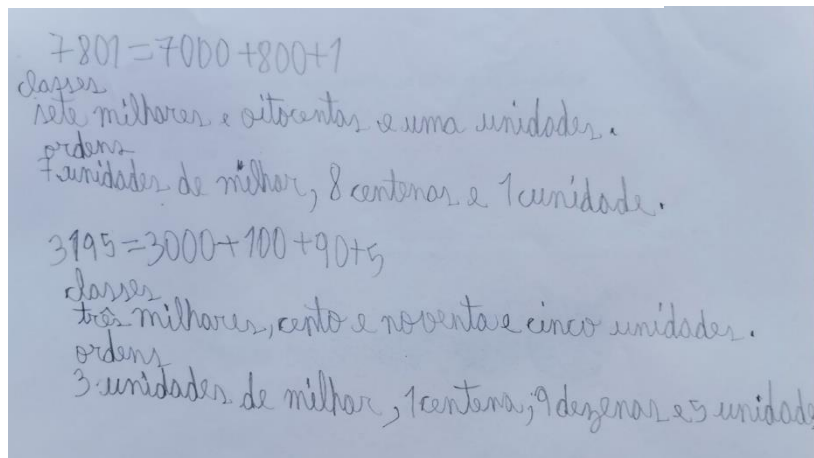 7801=7000+800+1
classes
sete milhares e oitocentas e uma unidades.
ordens
7 unidades de milhar, 8 centenas e 1 unidade.
3195=3000+100+90+5
classes
três milhares, cento e noventa e cinco unidades.
ordens
3 unidades de milhar, 1 centena, 9 dezenas e 5 unidade